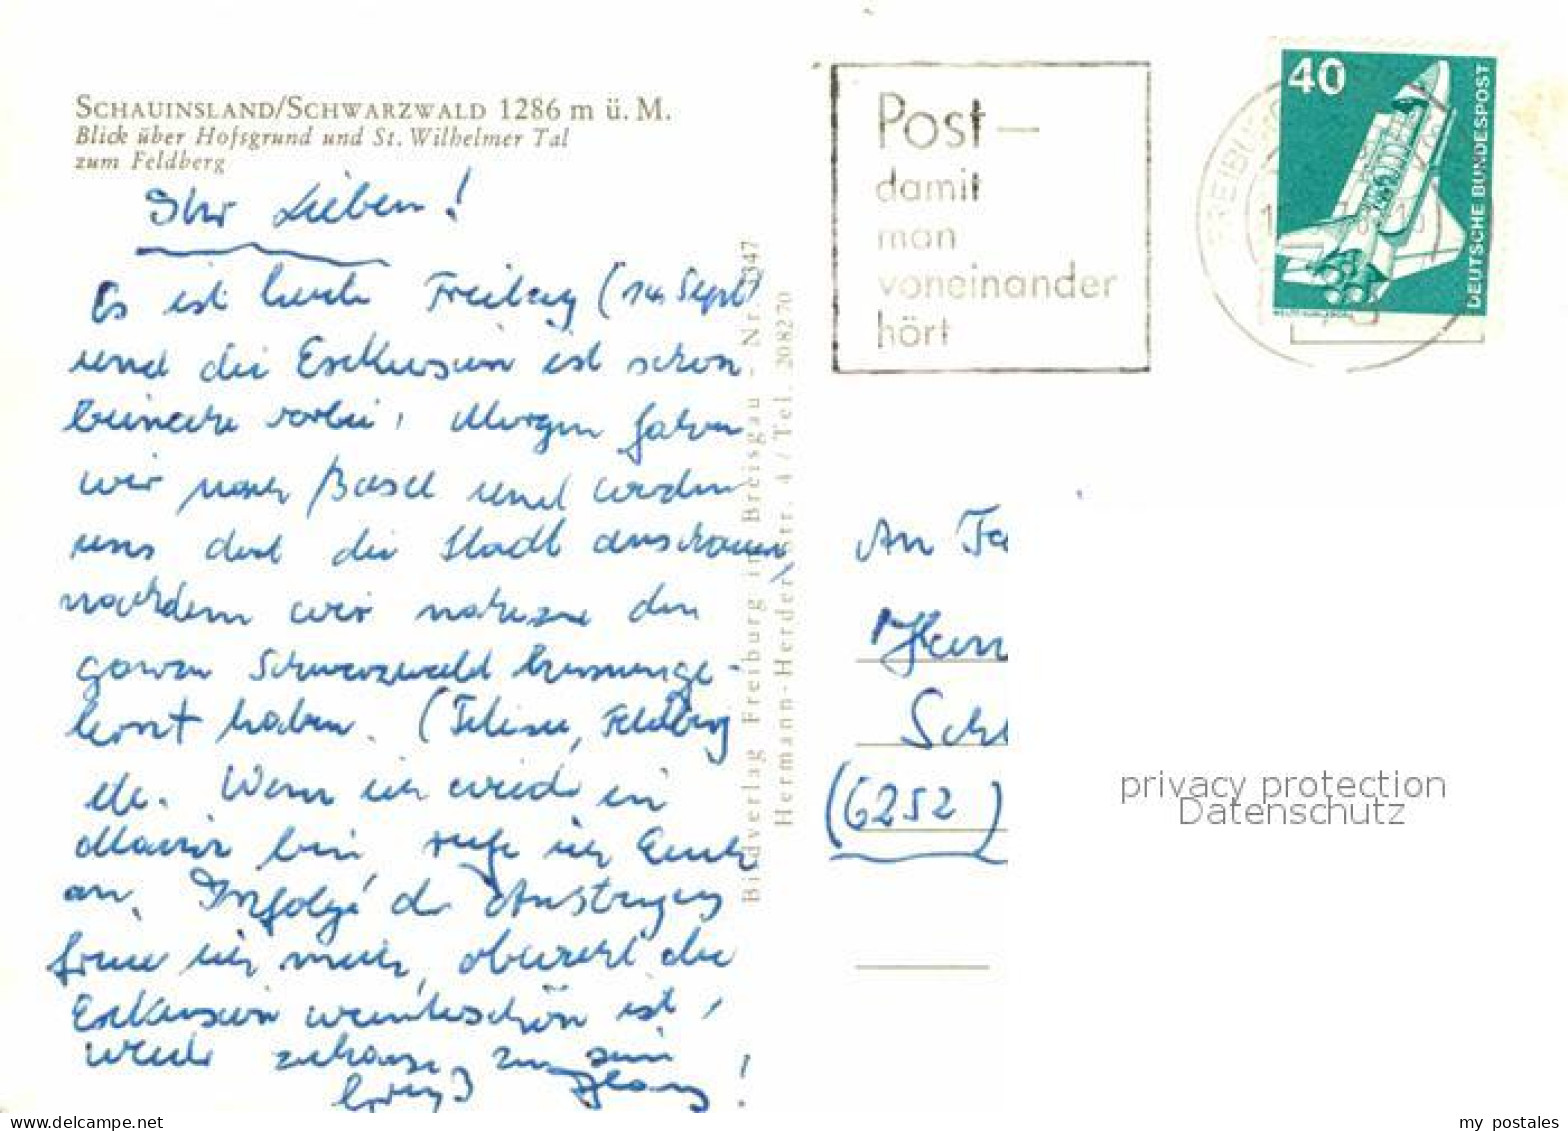 SCHAUINSLAND/SCHWARZWALD 1286 m ü. M.
Blick über Hofsgrund und St. Wilhelmer Tal
zum Feldberg
Ihr Lieben!
Es ist heute Freitag (14. Sept)
und die Exkursion ist schon
beinahe vorbei. Morgen fahren
wir nach Basel und werden
uns dort die Stadt anschauen,
nachdem wir nahezu den
ganzen Schwarzwald kennenge-
lernt haben. (Titisee, Feldberg
etc. Wenn ich wieder in
Mainz bin rufe ich Euch
an. Infolge der Anstrengung
freue ich mich, obwohl die
Exkursion wunderschön ist,
wieder zuhause zu sein!
Bildverlag Freiburg im Breisgau - Nr. 347
Hermann-Herder-Str. 4 / Tel. 208270
Post –
damit
man
voneinander
hört
FREIBURG
40
DEUTSCHE BUNDESPOST
An Fa
(6252)
privacy protection
Datenschutz
my postales